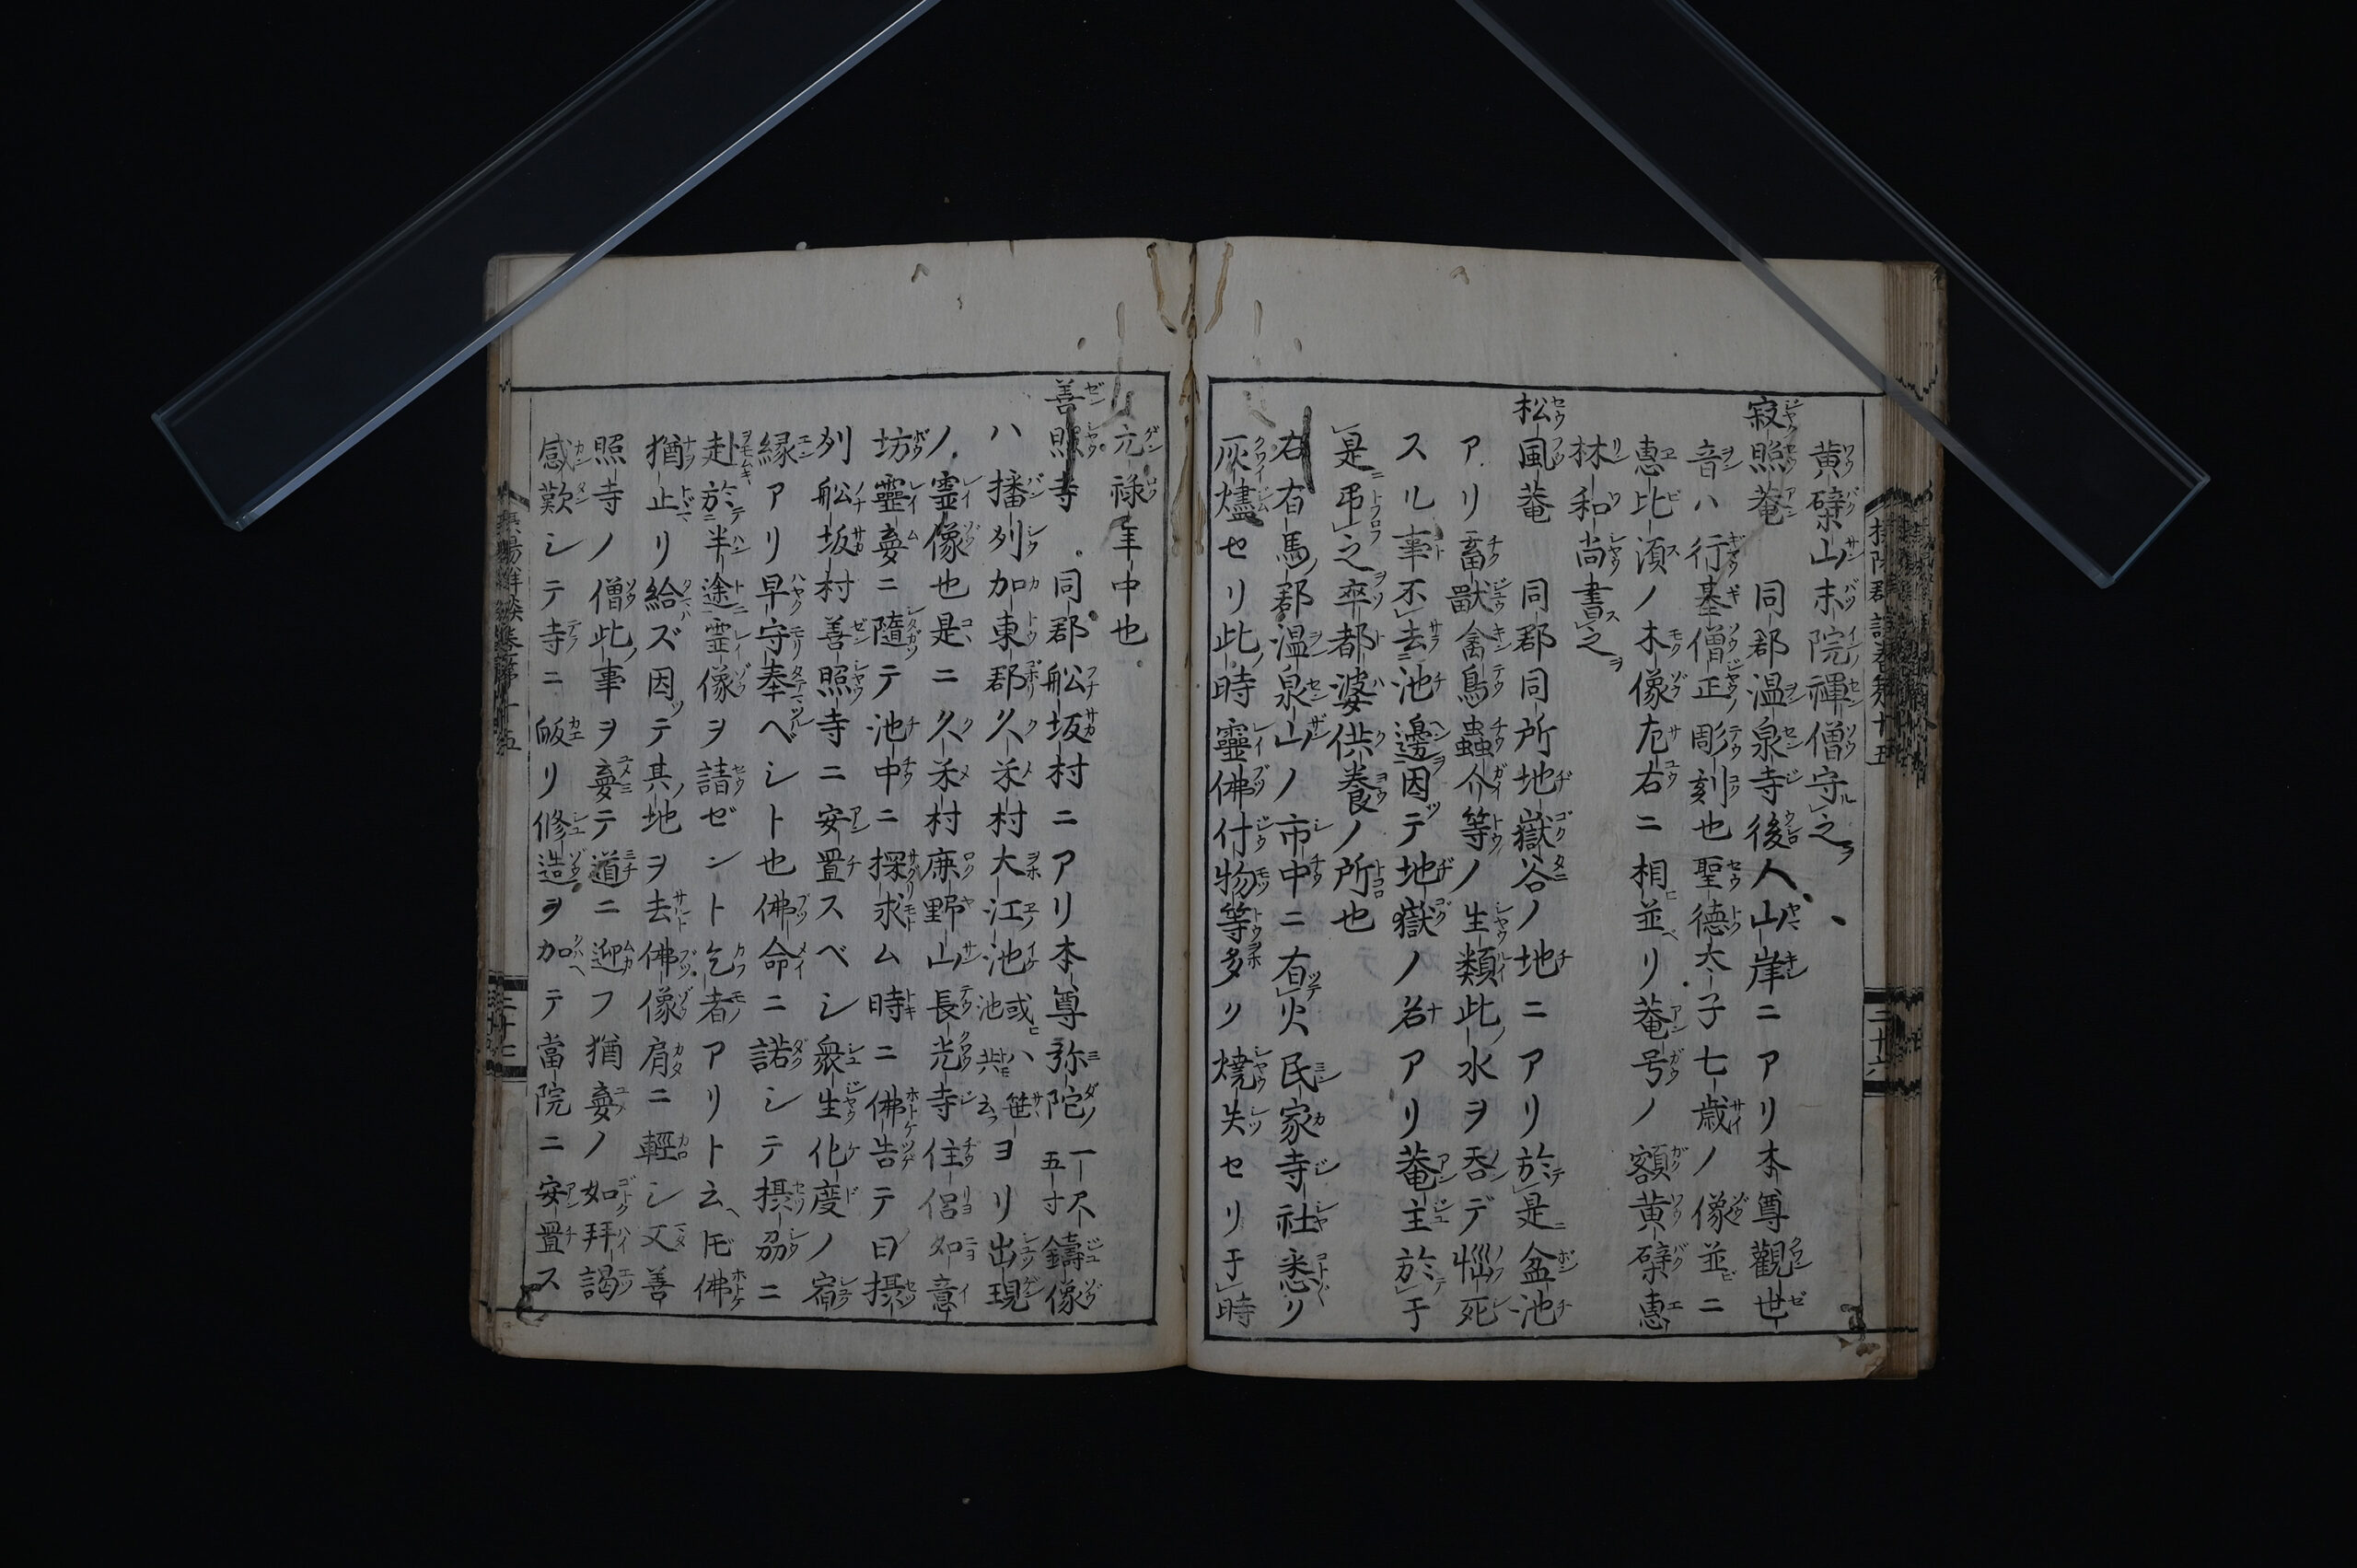 黄檗山末院禪僧守之
寂照菴　同郡温泉寺後人山岸ニアリ本尊觀世
音ハ行基僧正彫刻也聖德太子七歳ノ像並ニ
惠比湏ノ木像左右ニ相並ベリ菴号ノ額黄檗惠
林和尚書之
松風菴　同郡同所地嶽谷ノ地ニアリ於是盆池
アリ畜獸禽鳥蟲介等ノ生類此水ヲ呑デ悩死
スル事不去池邊因テ地嶽ノ名アリ菴主於于
是弔之卒都婆供養ノ所也
右有馬郡温泉山ノ市中ニ有火民家寺社悉リ
灰燼セリ此時靈佛付物等多リ燒失セリ于時
元禄年中也
善照寺　同郡舩坂村ニアリ本尊弥陀一尺五寸鑄像
ハ播列加東郡久米村大江池或ハ笹池共云ヨリ出現
ノ霊像也是ニ久米村廉野山長光寺住侶如意
坊靈夢ニ隨テ池中ニ探求ム時ニ佛告テ曰摂
列舩坂村善照寺ニ安置スベシ衆生化度ノ宿
縁アリ早守奉ヘシト也佛命ニ諾シテ摂刕ニ
赴於半途霊像ヲ請ゼント乞者アリト云ヘ𪜈佛
猶止リ給ズ因テ其地ヲ去佛像肩ニ輕シ又善
照寺ノ僧此事ヲ夢テ道ニ迎フ猶夢ノ如拜謁
感歎シテ寺ニ皈リ修造ヲ加テ當院ニ安置ス
攝陽群談巻第十五
二十七
二十六